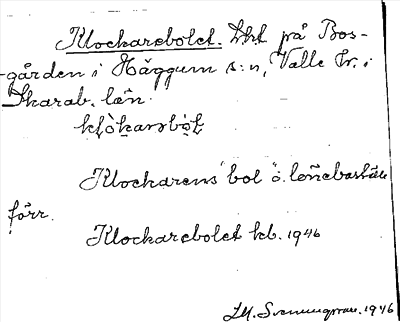 Klockarebolet. Lht på Bos-
-gården i Häggum s:n, Valle hr. i
Skarab. län.
klòkarəbòt
Klockarens bol o. lönebostäl
förr.
Klockarebolet kb. 1946
1946